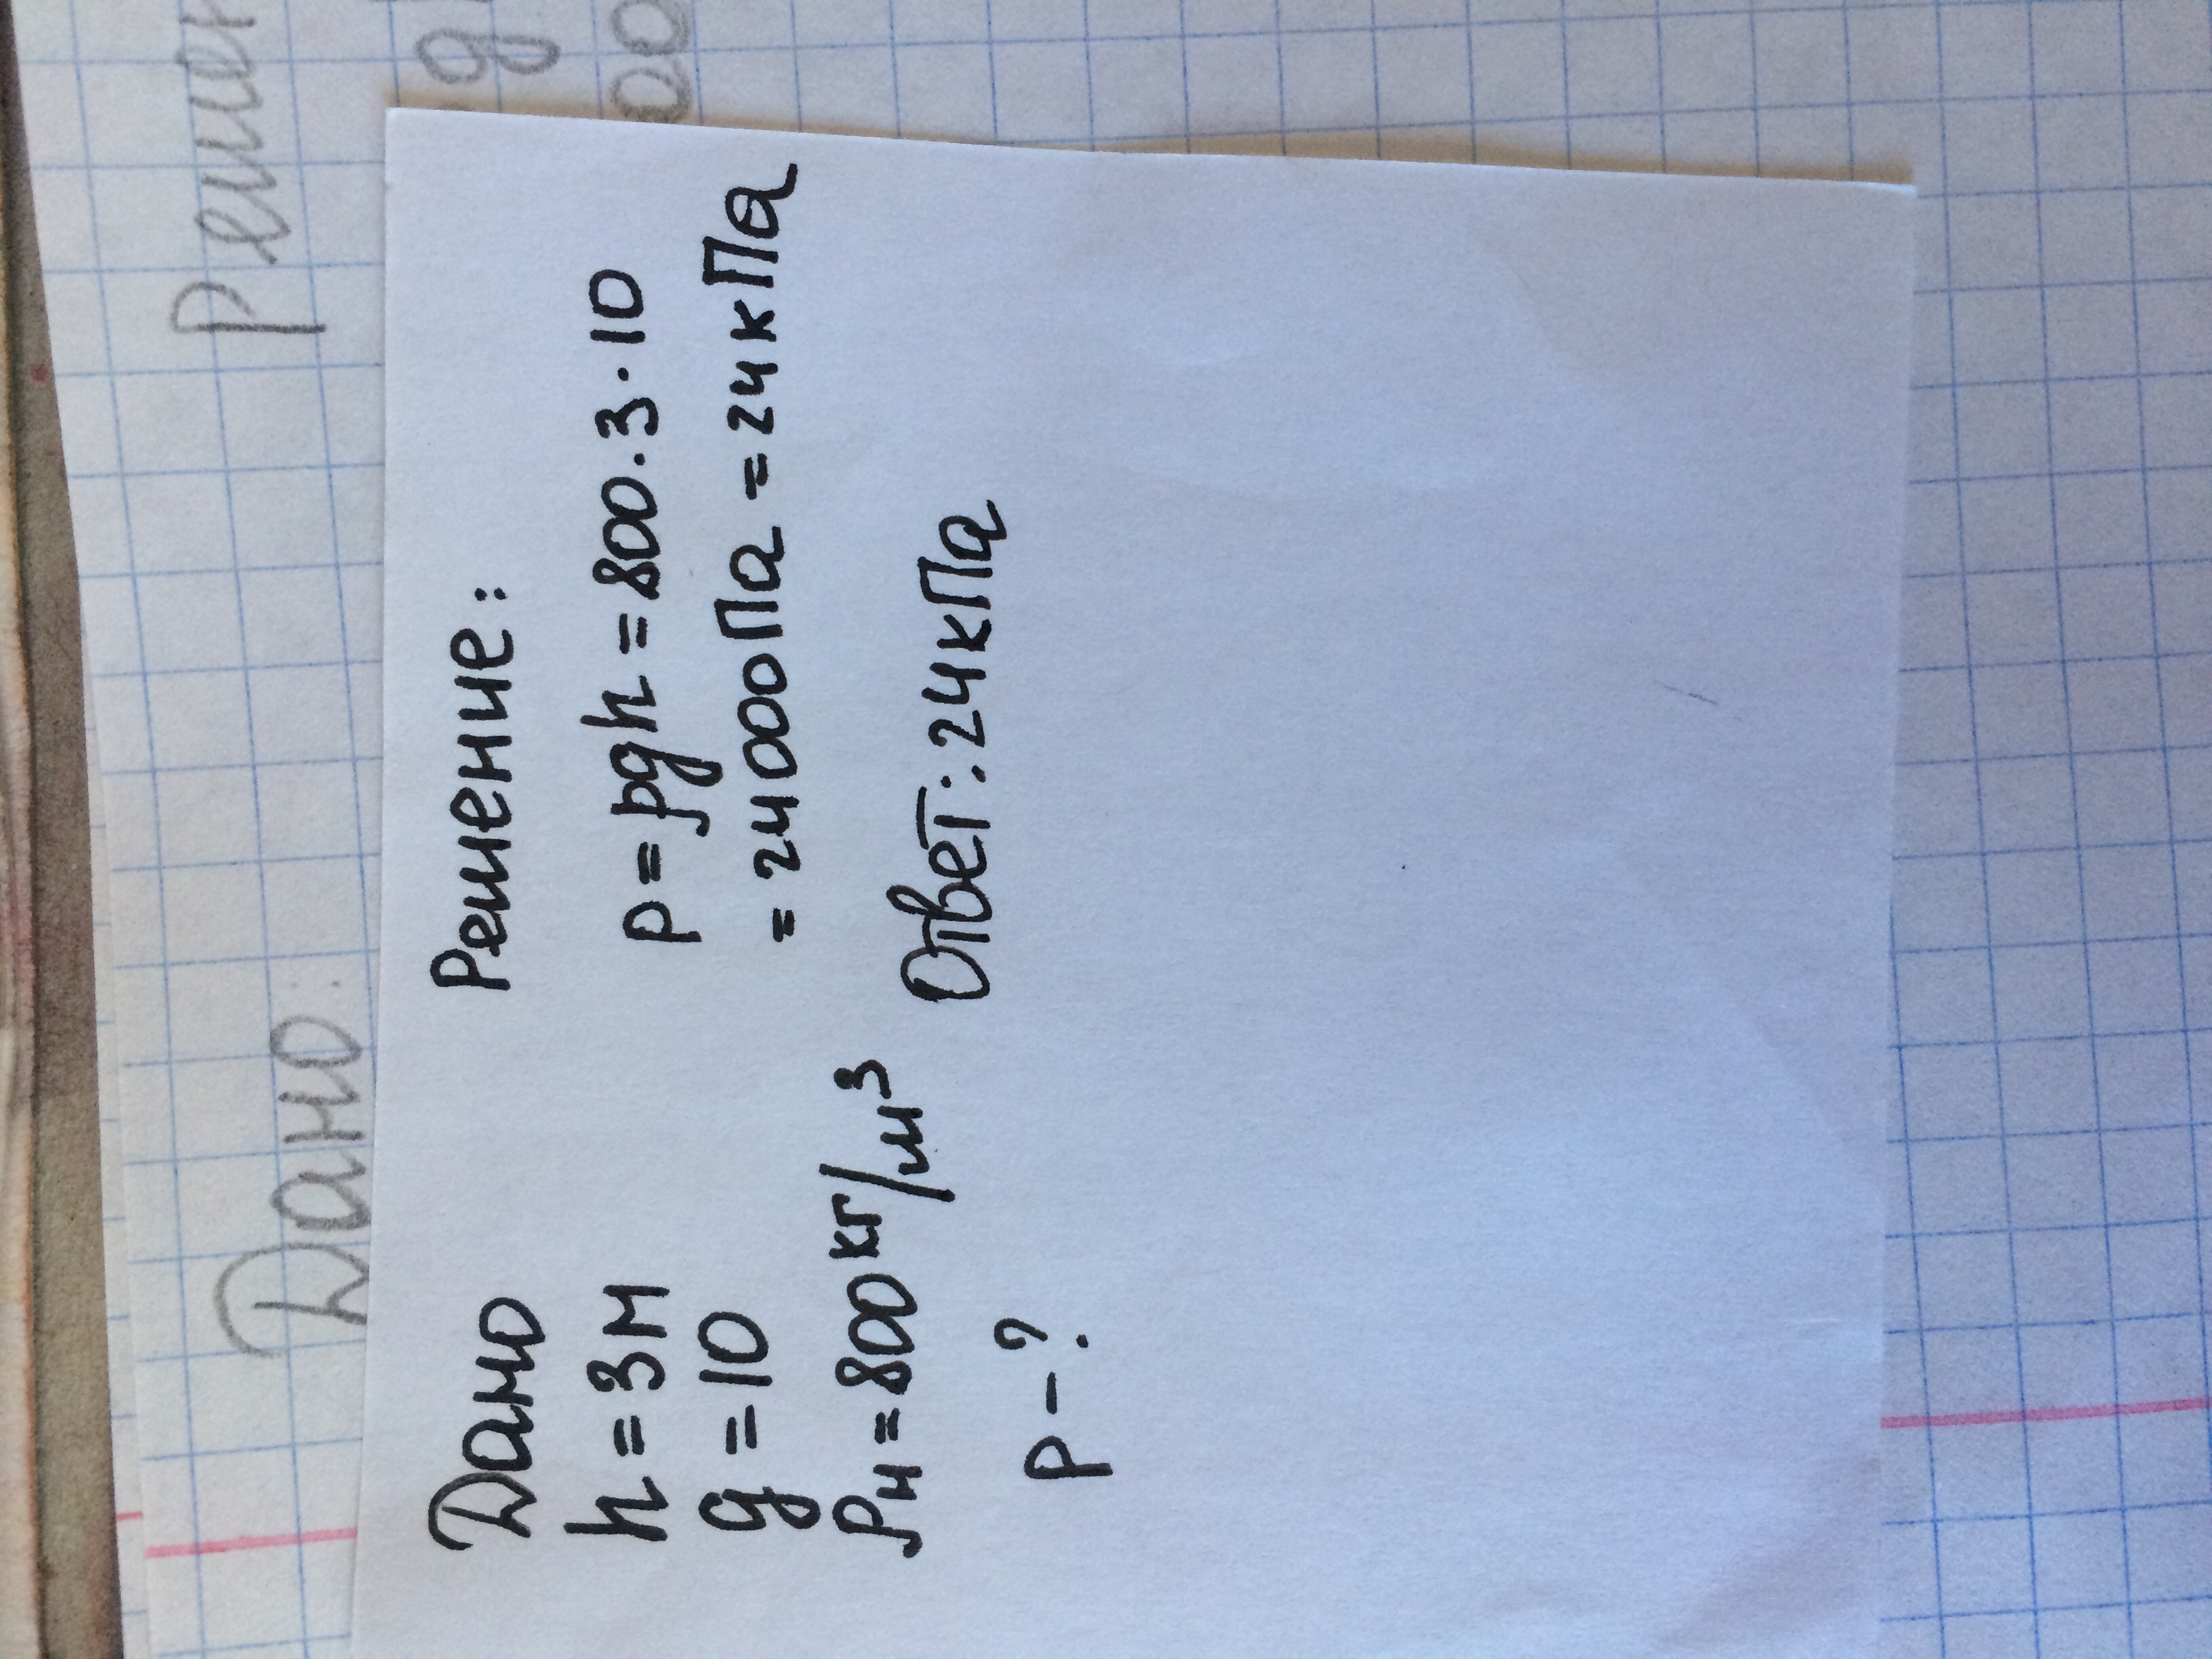 Дано
Решение:
Дано
h = 3м
g = 10
ρн = 800 кг/м³
p - ?
Решение:
p = ρgh = 800 . 3 · 10
= 24000Па = 24кПа
Ответ: 24кПа